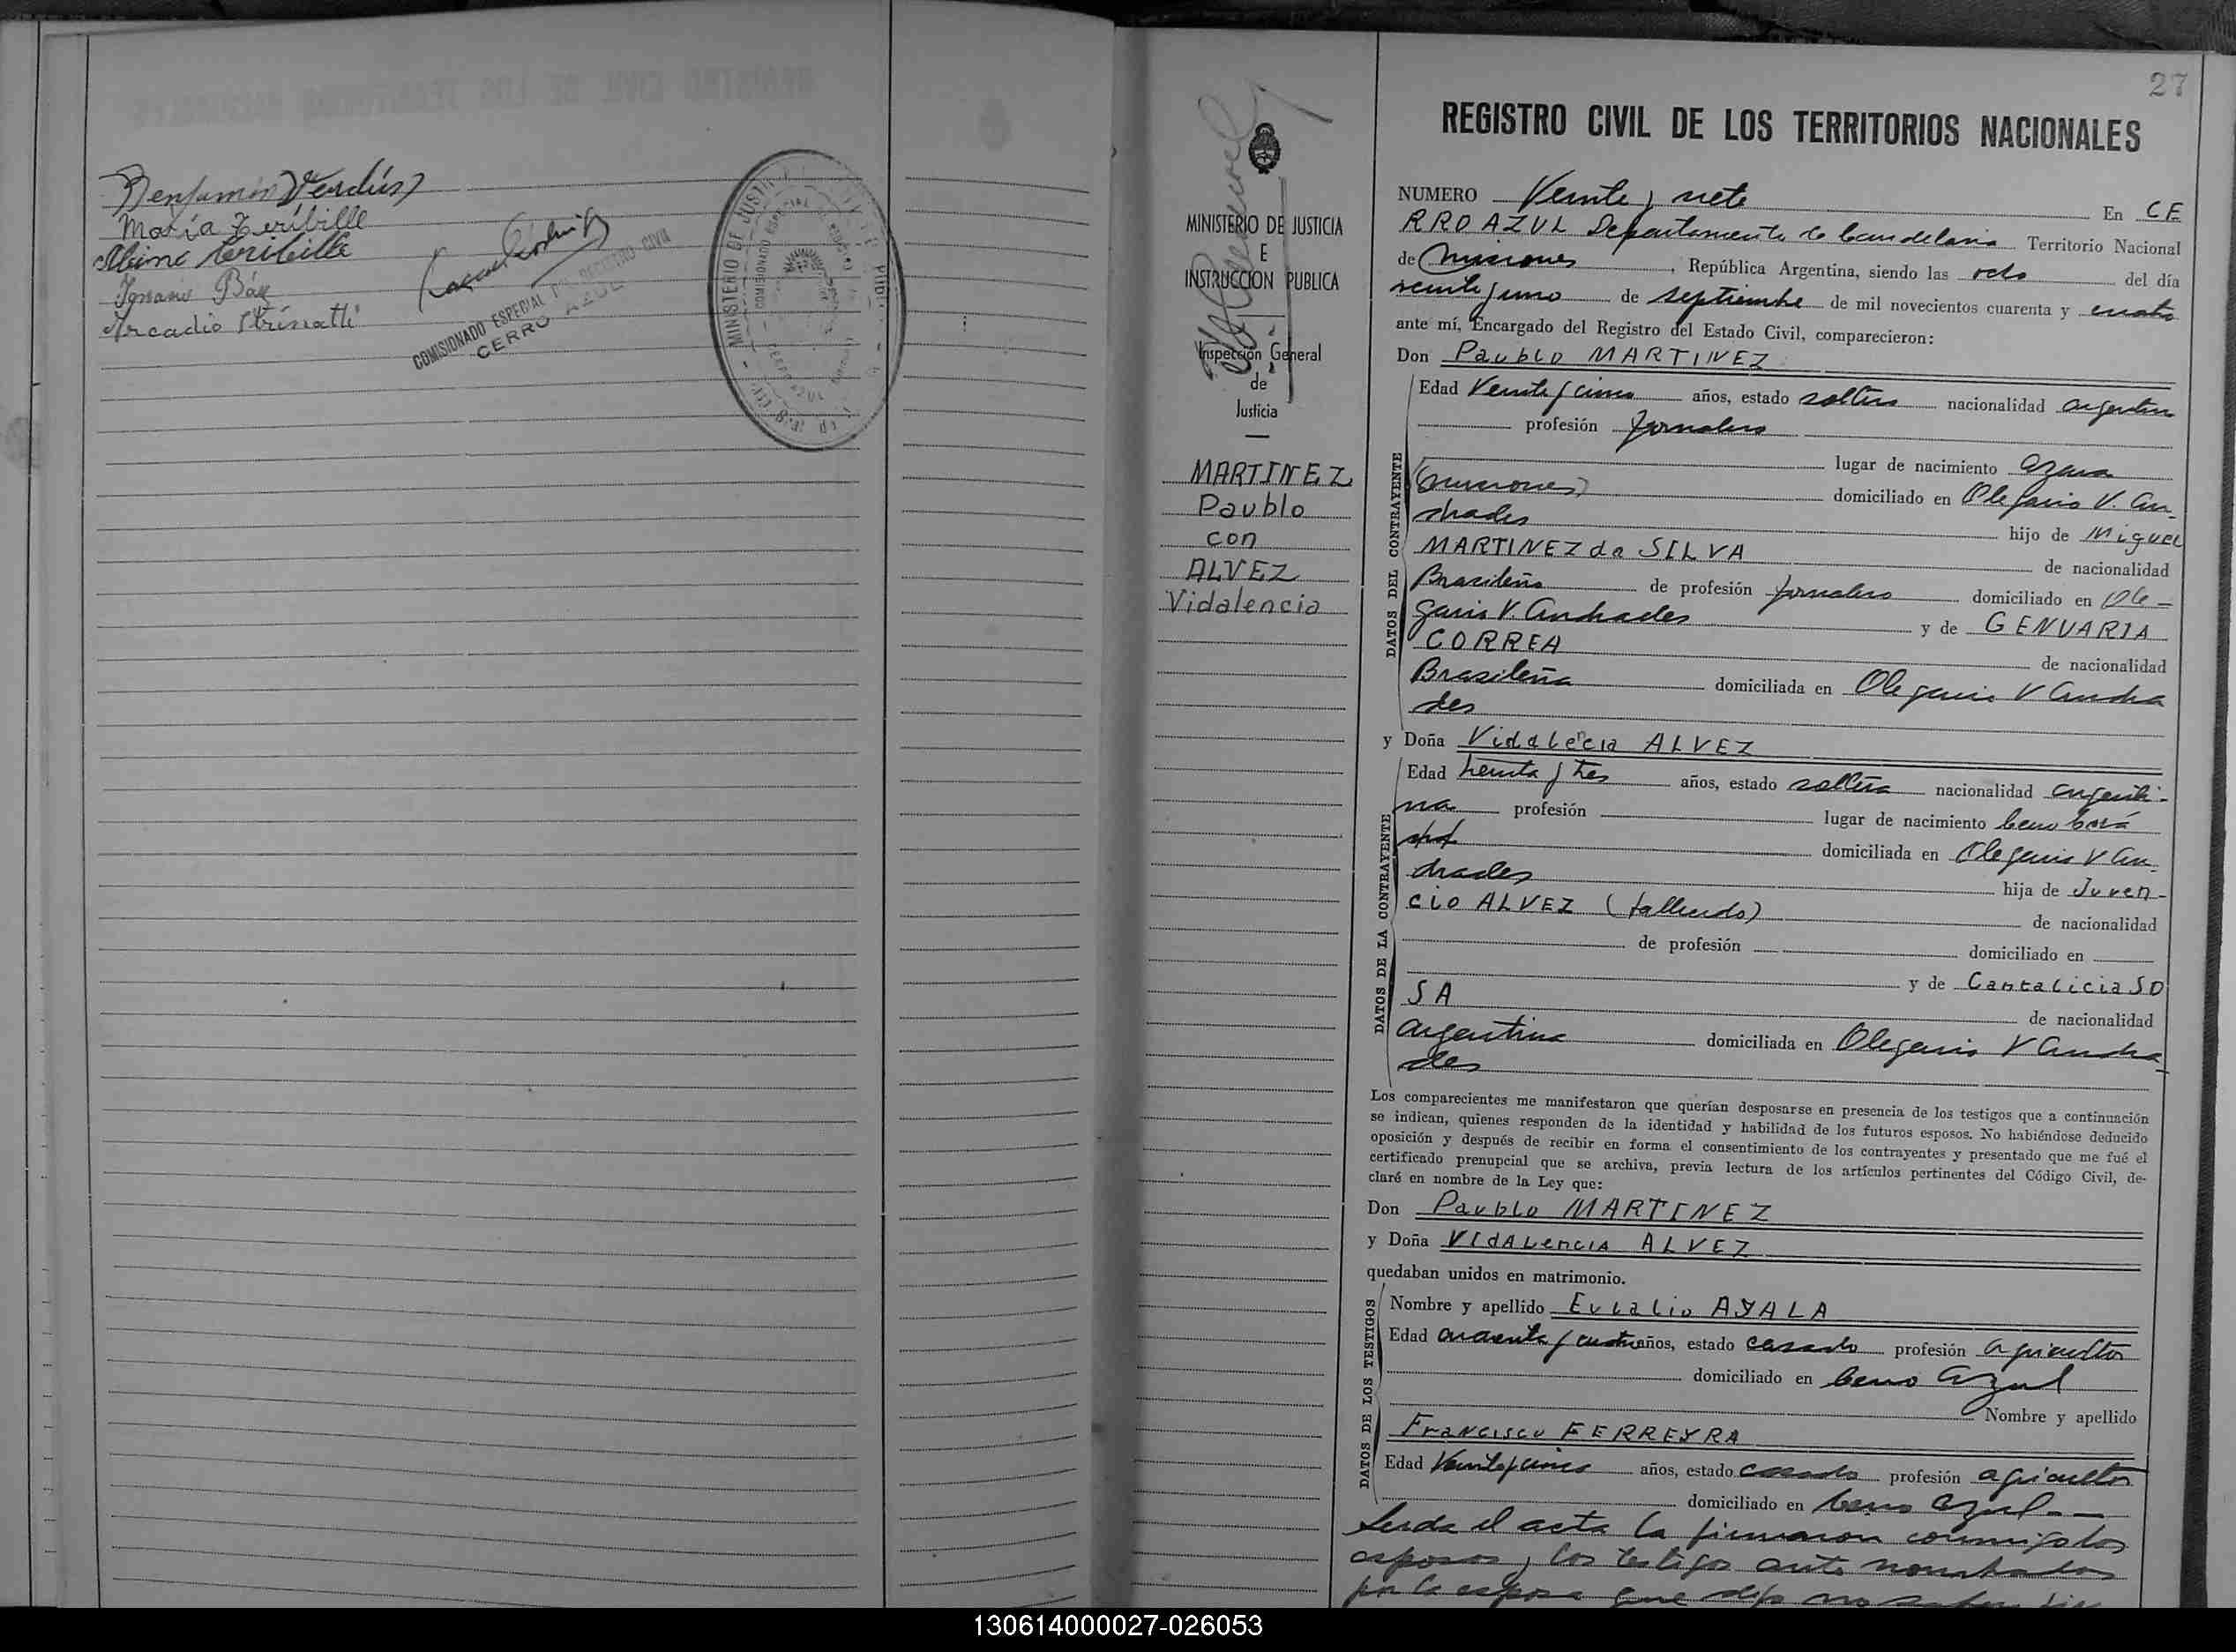 Benjamin Verdún
María Teribille
Teribille
Ignacio Báez
Arcadio Strinatti
COMISIONADO ESPECIAL REGISTRO CIVIL
CERRO AZUL
MINISTERIO DE JUSTICIA
COMISIONADO ESPECIAL
CERRO AZUL
27
MINISTERIO DE JUSTICIA
E
INSTRUCCION PUBLICA
Inspección General
de
Justicia
MARTINEZ
Paublo
con
ALVEZ
Vidalencia
REGISTRO CIVIL DE LOS TERRITORIOS NACIONALES
NUMERO Veinte y siete En CE
RRO AZUL Departamento de Candelaria Territorio Nacional
de Misiones, República Argentina, siendo las ocho del día
veinte y uno de septiembre de mil novecientos cuarenta y cuatro
ante mí, Encargado del Registro del Estado Civil, comparecieron:
Don Paublo MARTINEZ
DATOS DEL CONTRAYENTE
Edad Veinte y cinco años, estado soltero nacionalidad argentin
profesión Jornalero
lugar de nacimiento Azara
(Misiones) domiciliado en Olegario V. An-
drades hijo de Miguel
MARTINEZ da SILVA de nacionalidad
Brasileño de profesión jornalero domiciliado en Ole-
gario V. Andrades y de GENUARIA
CORREA de nacionalidad
Brasileña domiciliada en Olegario V Andra
des
y Doña Vidalencia ALVEZ
DATOS DE LA CONTRAYENTE
Edad treinta y tres años, estado soltera nacionalidad argenti-
na profesión lugar de nacimiento Cerro Corá
domiciliada en Olegario V An-
drades hija de Juven-
cio ALVEZ (fallecido) de nacionalidad
de profesión domiciliado en
y de Cantalicia SO
SA de nacionalidad
argentina domiciliada en Olegario V Andra-
des
Los comparecientes me manifestaron que querían desposarse en presencia de los testigos que a continuación
se indican, quienes responden de la identidad y habilidad de los futuros esposos. No habiéndose deducido
oposición y después de recibir en forma el consentimiento de los contrayentes y presentado que me fué el
certificado prenupcial que se archiva, previa lectura de los artículos pertinentes del Código Civil, de-
claré en nombre de la Ley que:
Don Paublo MARTINEZ
y Doña VIdALencIA ALVEZ
quedaban unidos en matrimonio.
DATOS DE LOS TESTIGOS
Nombre y apellido Eulalio AYALA
Edad cuarenta y cuatro años, estado casado profesión agricultor
domiciliado en Cerro Azul
Nombre y apellido
Francisco FERREYRA
Edad Veinte y cinco años, estado casado profesión agricultor
domiciliado en Cerro Azul.-
Leida el acta la firmaron conmigo los
esposos y los testigos ante nombrados
por la esposa que dijo no saber
130614000027-026053